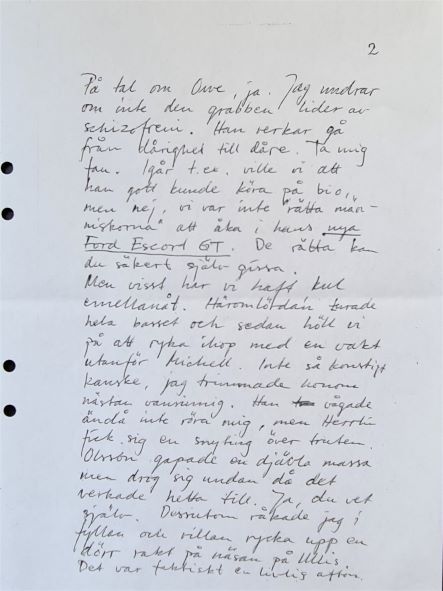 2
På tal om Owe, ja. Jag undrar
om inte den grabben lider av
schizofreni. Han verkar gå
från dårighet till dåre. Ta mig
fan. Igår t.ex. ville vi att
han gott kunde köra på bio,
men nej, vi var inte "rätta män-
niskorna" att åka i hans nya
Ford Escord GT. De rätta kan
du säkert själv gissa.
Men visst har vi haft kul
emellanåt. Häromlördan
hela basset och sedan höll vi
på att ryka ihop med en vakt
utanför Michell. Inte så konstigt
kanske, jag trimmade honom
nästan vansinnig. Han vågade
ändå inte röra mig, men Herrlin
fick sig en snyting över truten.
Olsson gapade en djävla massa
men drog sig undan då det
verkade hetta till. Ja, du vet
själv. Dessutom råkade jag i
fyllan och villan rycka upp en
dörr rakt på näsan på Ullis.
Det var faktiskt en livlig afton.